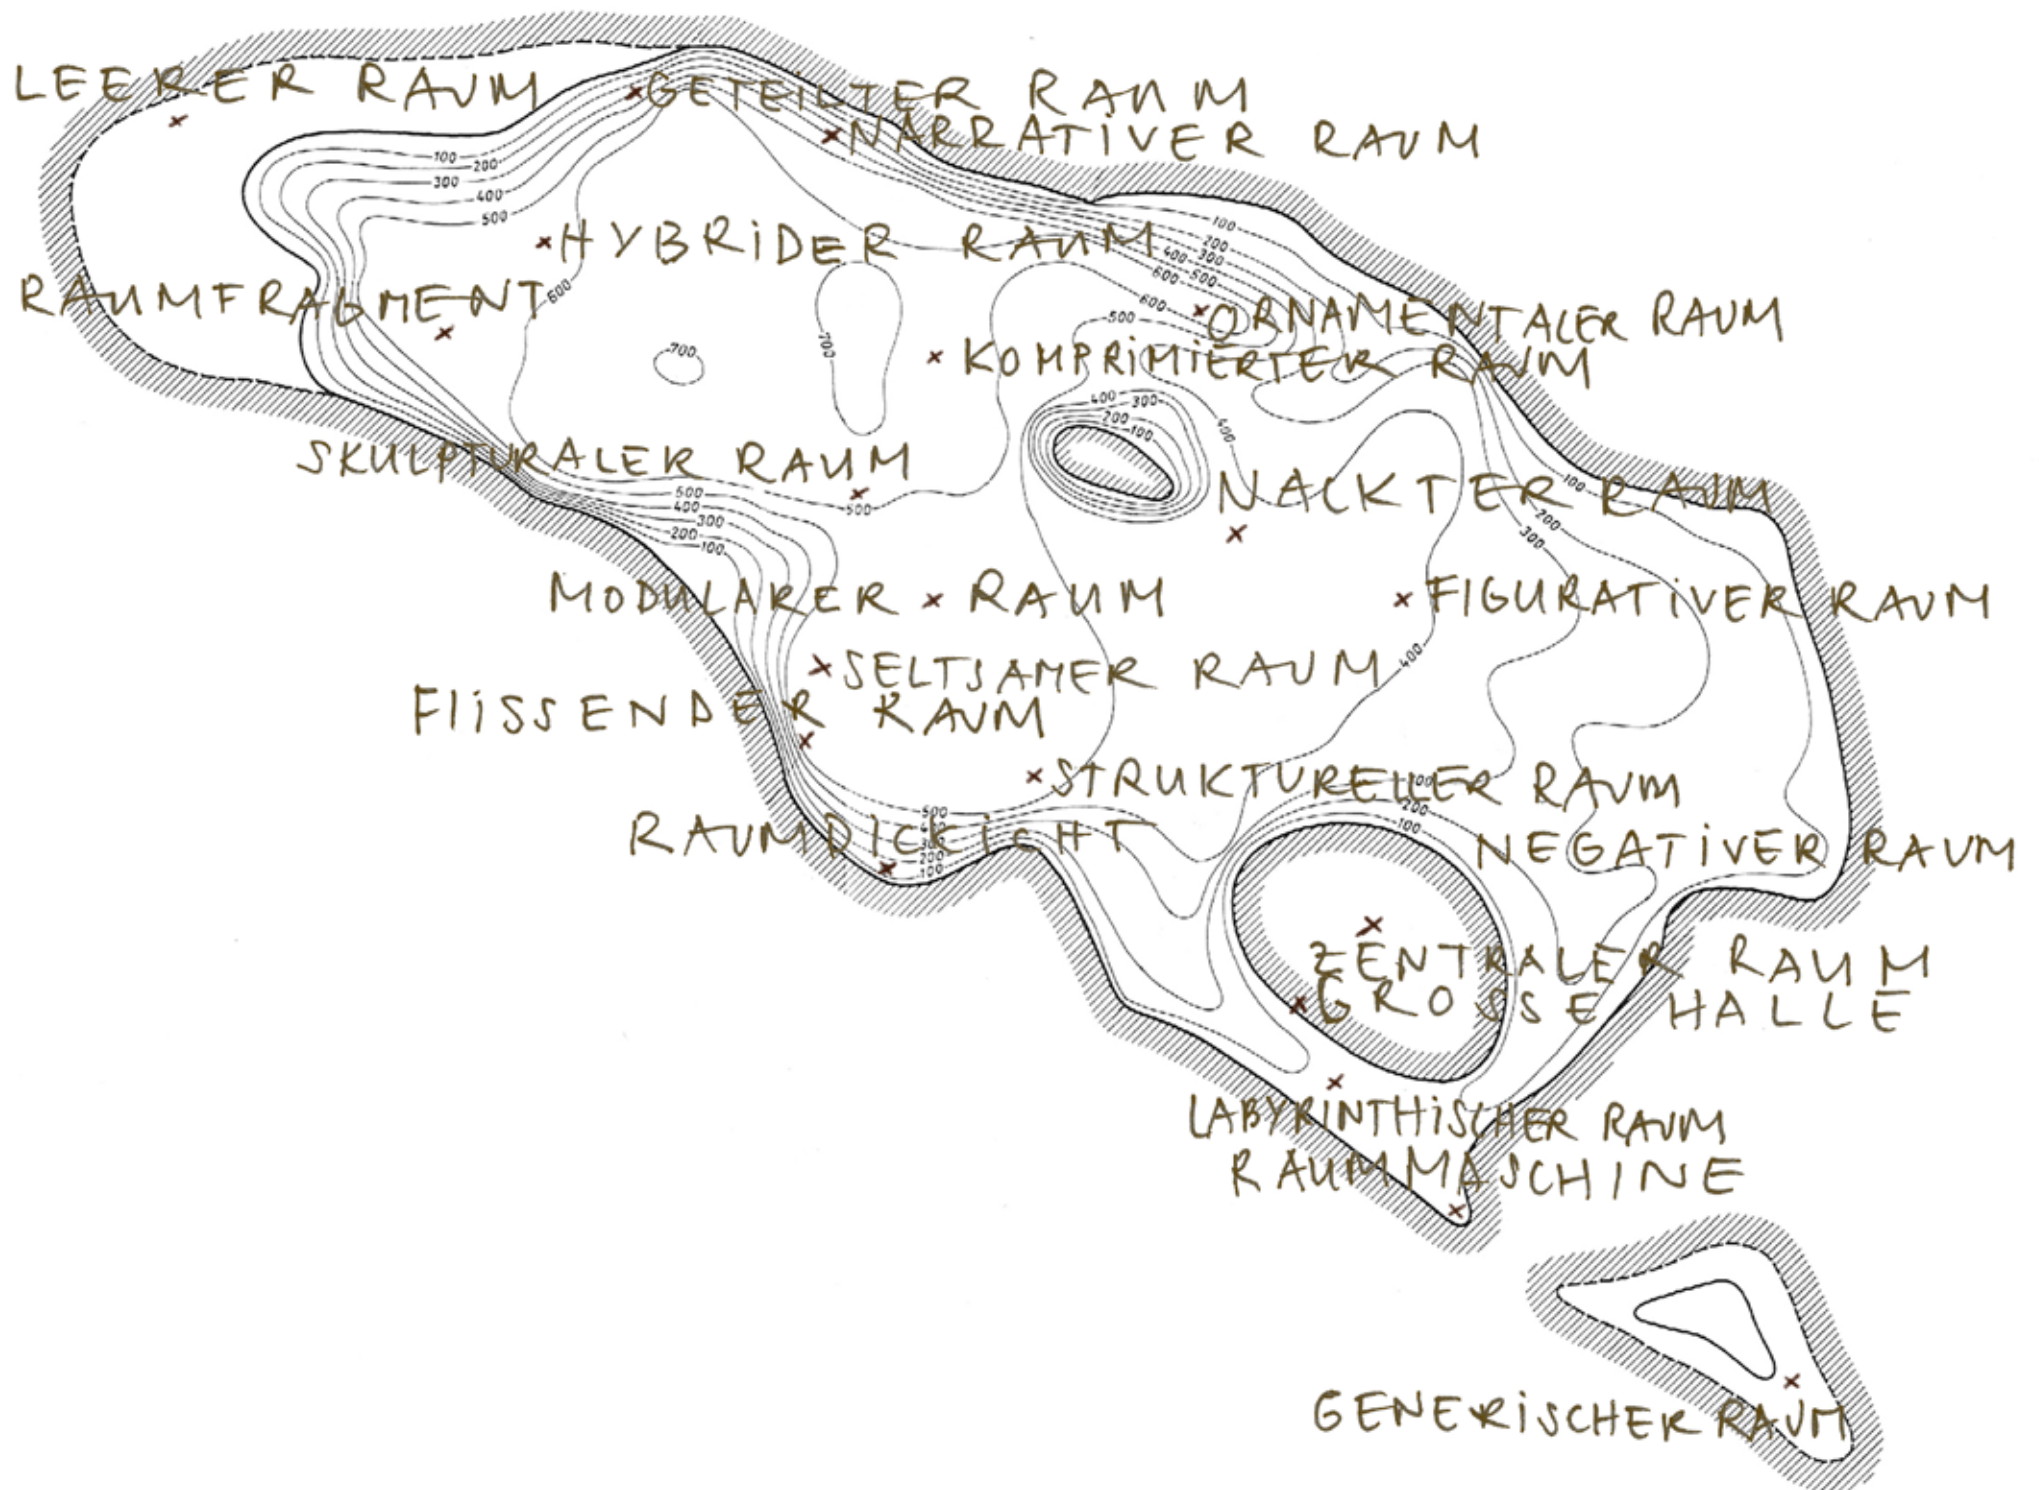 LEERER RAUM
GETEILTER RAUM
NARRATIVER RAUM
100
200
300
400
500
100
200
300
400 500
600
HYBRIDER RAUM
RAUMFRAGMENT
600
700
700
600
500
ORNAMENTALER RAUM
KOMPRIMIERTER RAUM
400 300
200 100
400
SKULPTURALER RAUM
500
400
300
200
100
500
NACKTER RAUM
100
200
300
MODULARER RAUM
FIGURATIVER RAUM
SELTSAMER RAUM
400
FLISSENDER RAUM
STRUKTURELLER RAUM
300
200
100
500
400
300
200
100
RAUMDICKICHT
NEGATIVER RAUM
ZENTRALER RAUM
GROSSE HALLE
LABYRINTHISCHER RAUM
RAUMMASCHINE
GENERISCHER RAUM